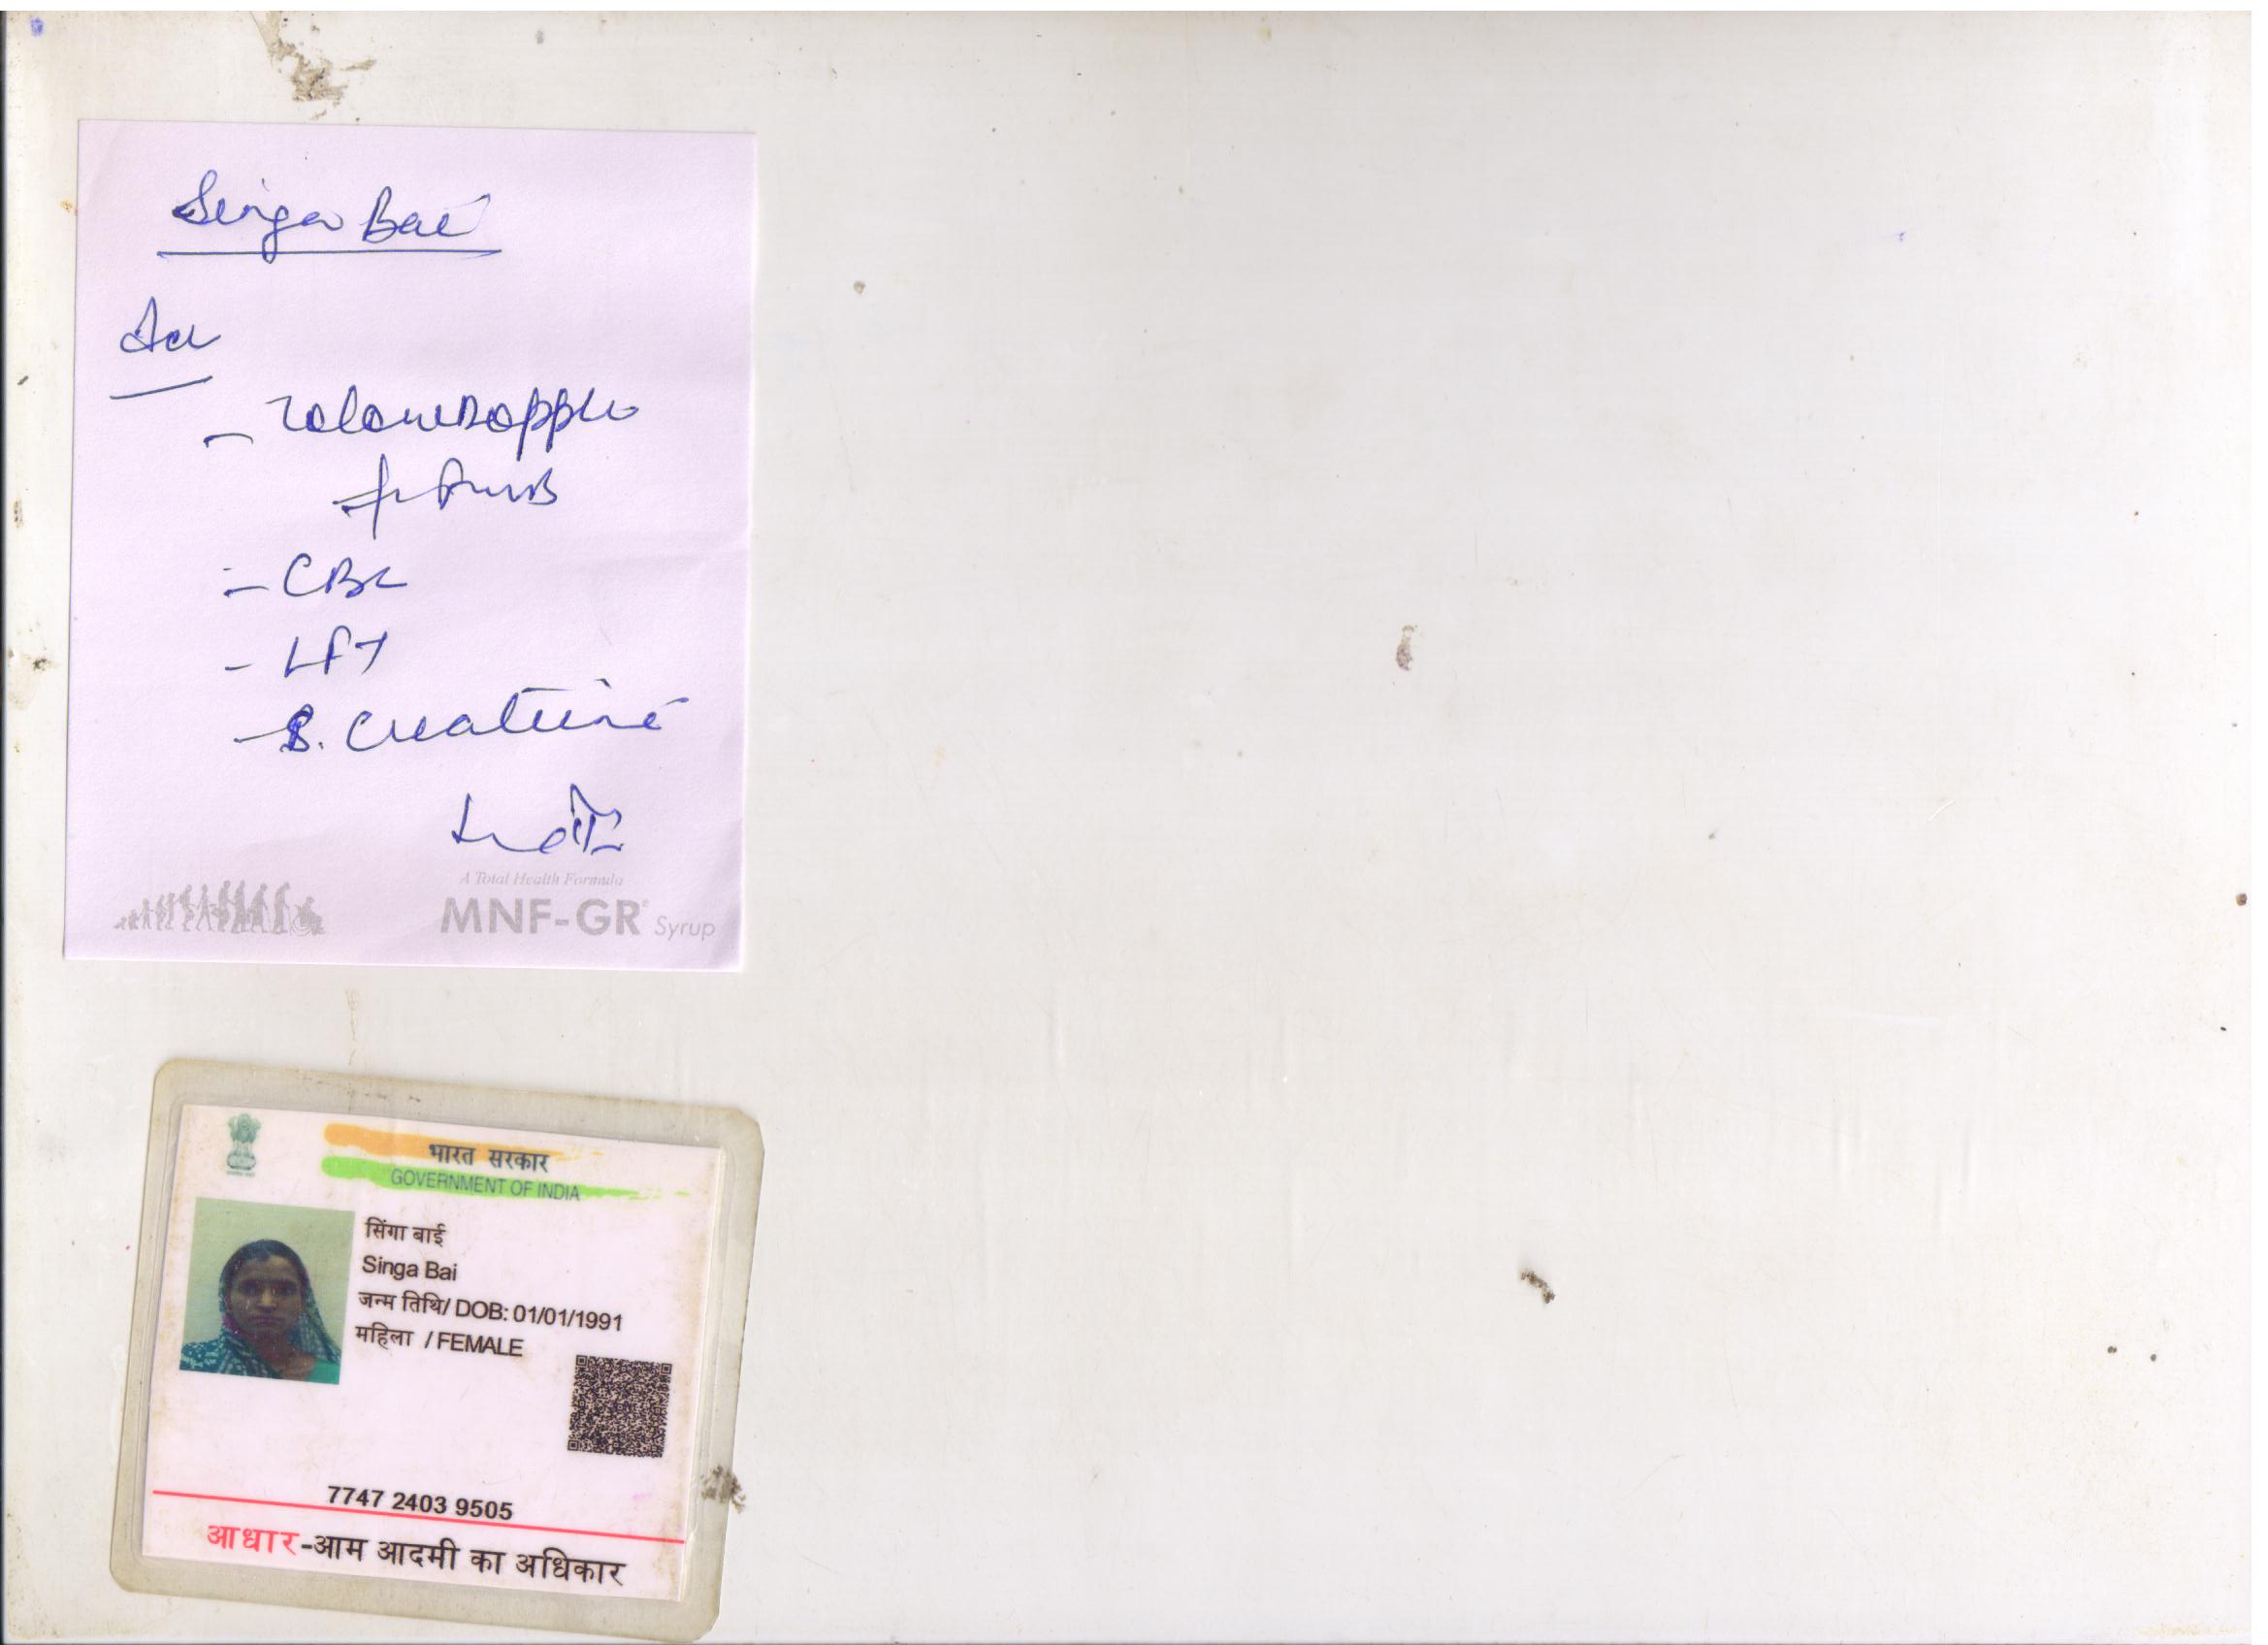 Singa Bai
Adv
- Colour Doppler
- CBC
- LFT
- S. Creatinine
A Total Health Formula
MNF-GR® Syrup
भारत सरकार
GOVERNMENT OF INDIA
सिंगा बाई
Singa Bai
जन्म तिथि/ DOB: 01/01/1991
महिला / FEMALE
7747 2403 9505
आधार-आम आदमी का अधिकार